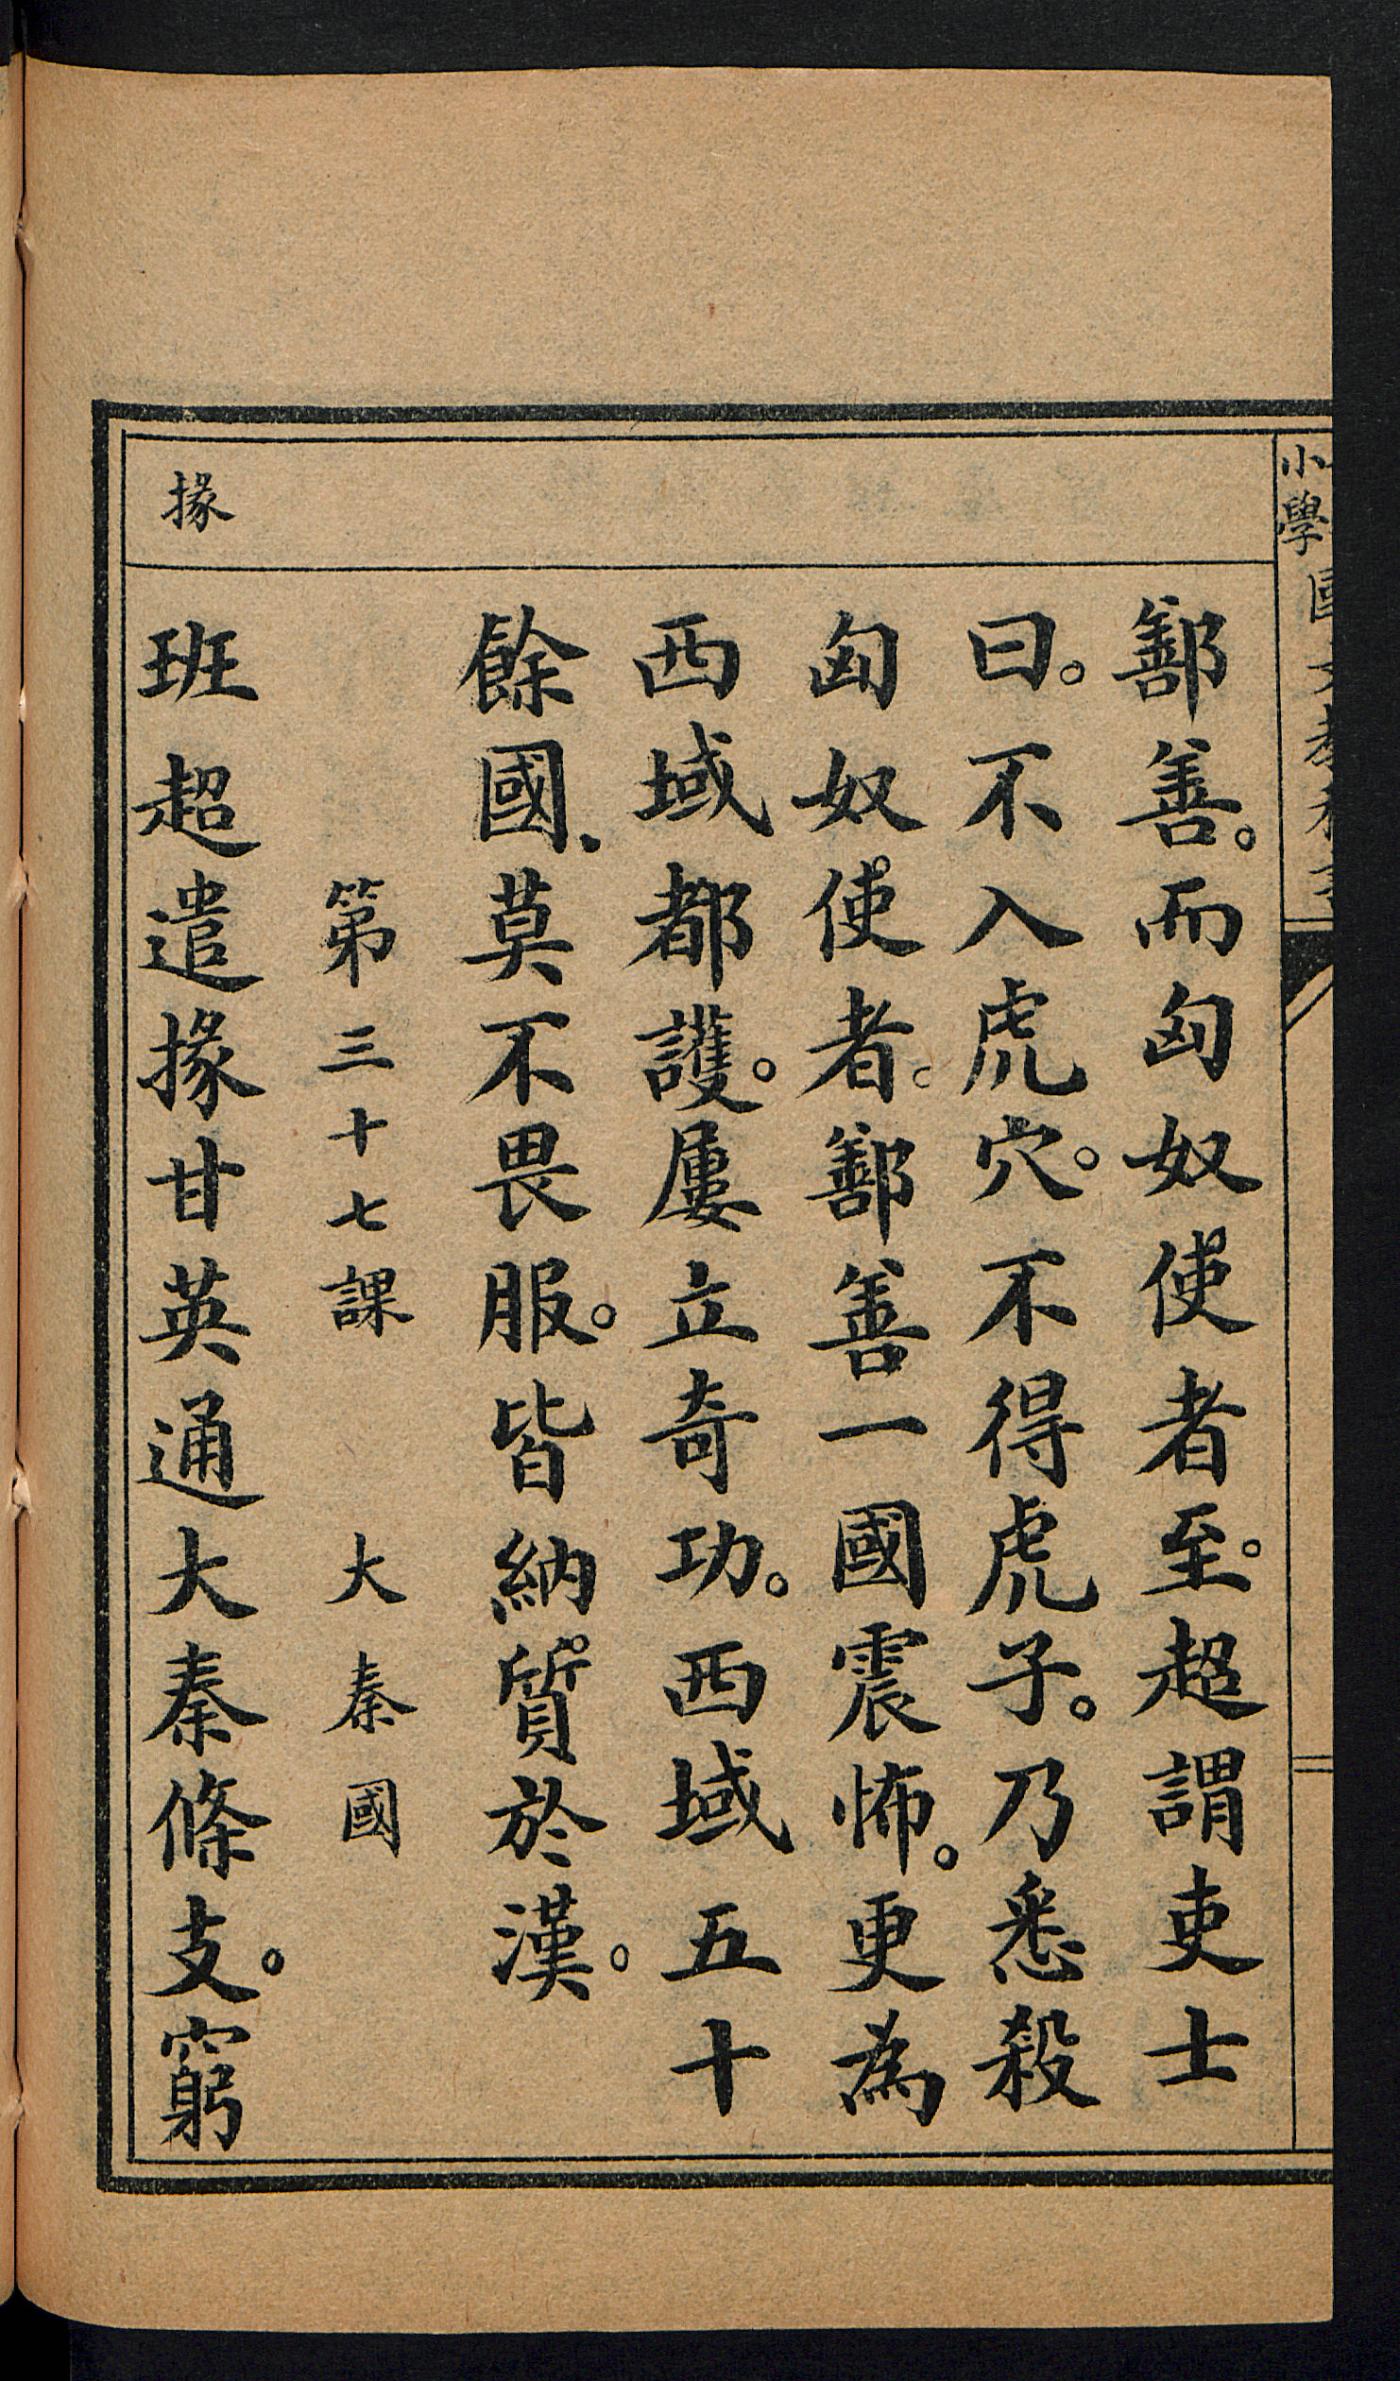 小學國文教科書
鄯善。而匈奴使者至。超謂吏士
曰。不入虎穴。不得虎子。乃悉殺
匈奴使者。鄯善一國震怖。更為
西域都護。屢立奇功。西域五十
餘國.莫不畏服。皆納質於漢。
第三十七課 大秦國
掾
班超遣掾甘英通大秦條支。窮